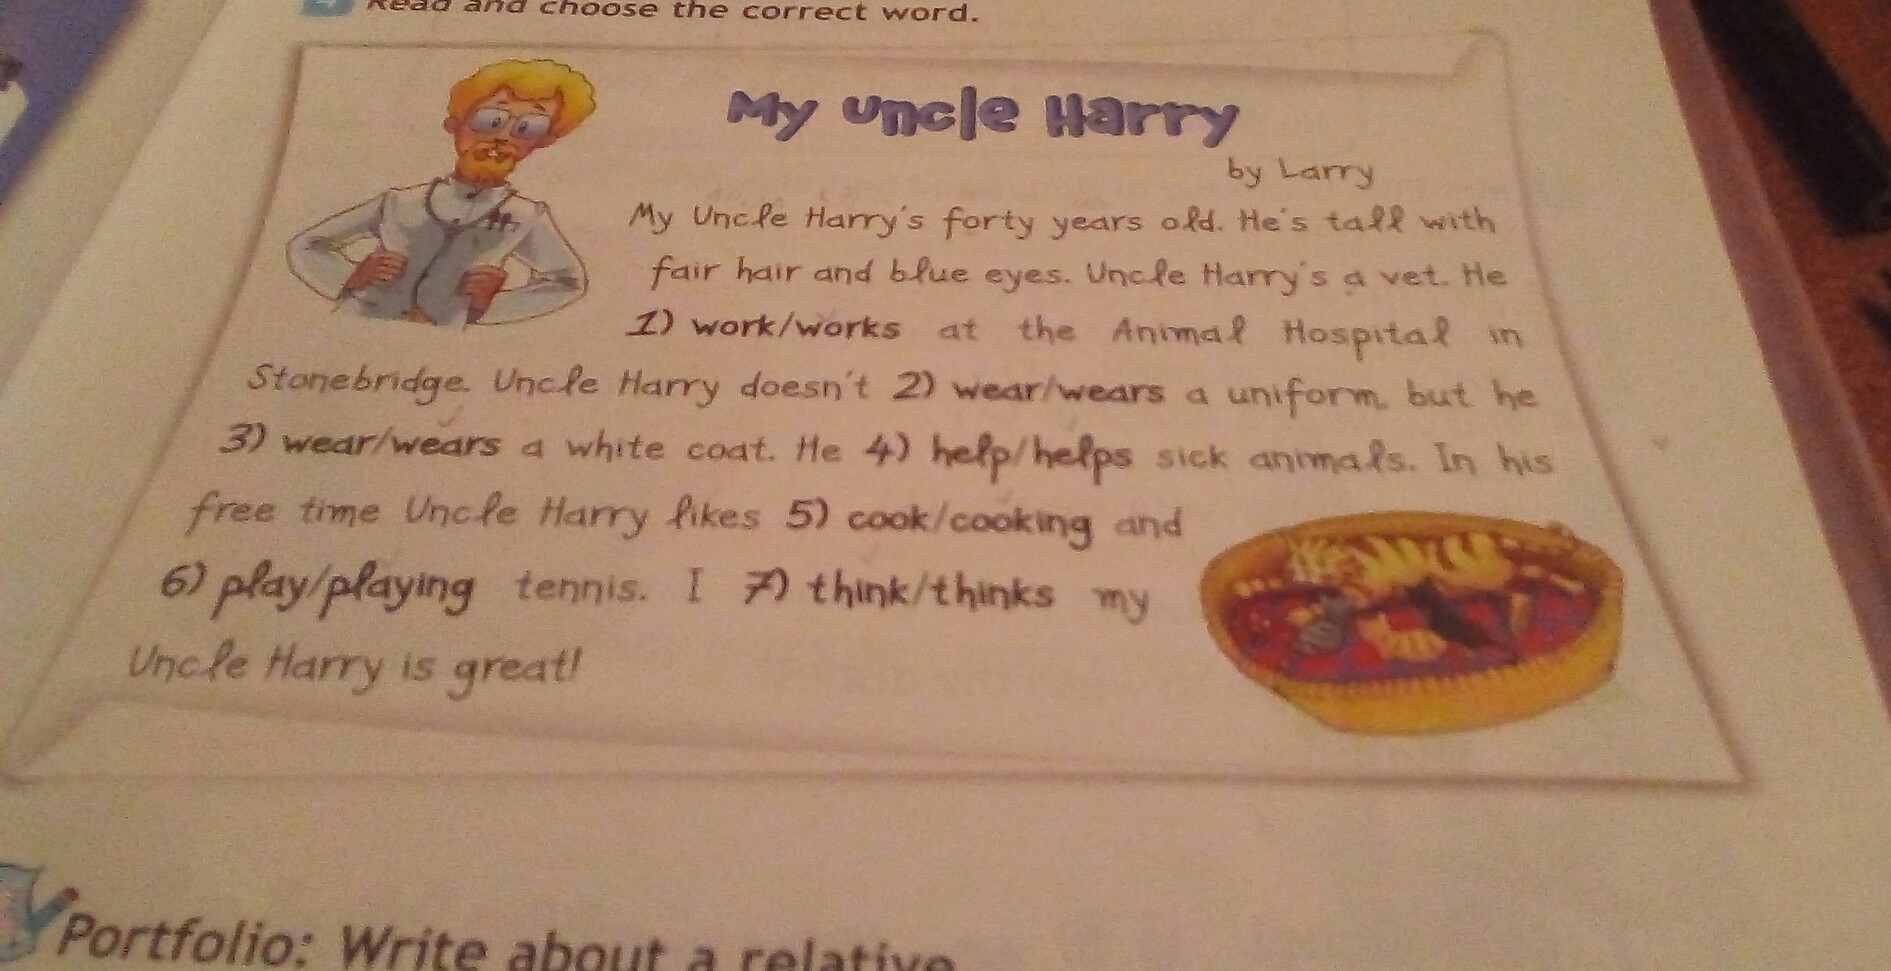 Read and choose the correct word.
My Uncle Harry
by Larry
My Uncle Harry's forty years old. He's tall with
fair hair and blue eyes. Uncle Harry's a vet. He
1) work/works at the Animal Hospital in
Stonebridge. Uncle Harry doesn't 2) wear/wears a uniform, but he
3) wear/wears a white coat. He 4) help/helps sick animals. In his
free time Uncle Harry likes 5) cook/cooking and
6) play/playing tennis. I 7) think/thinks my
Uncle Harry is great!
Portfolio: Write about a relative